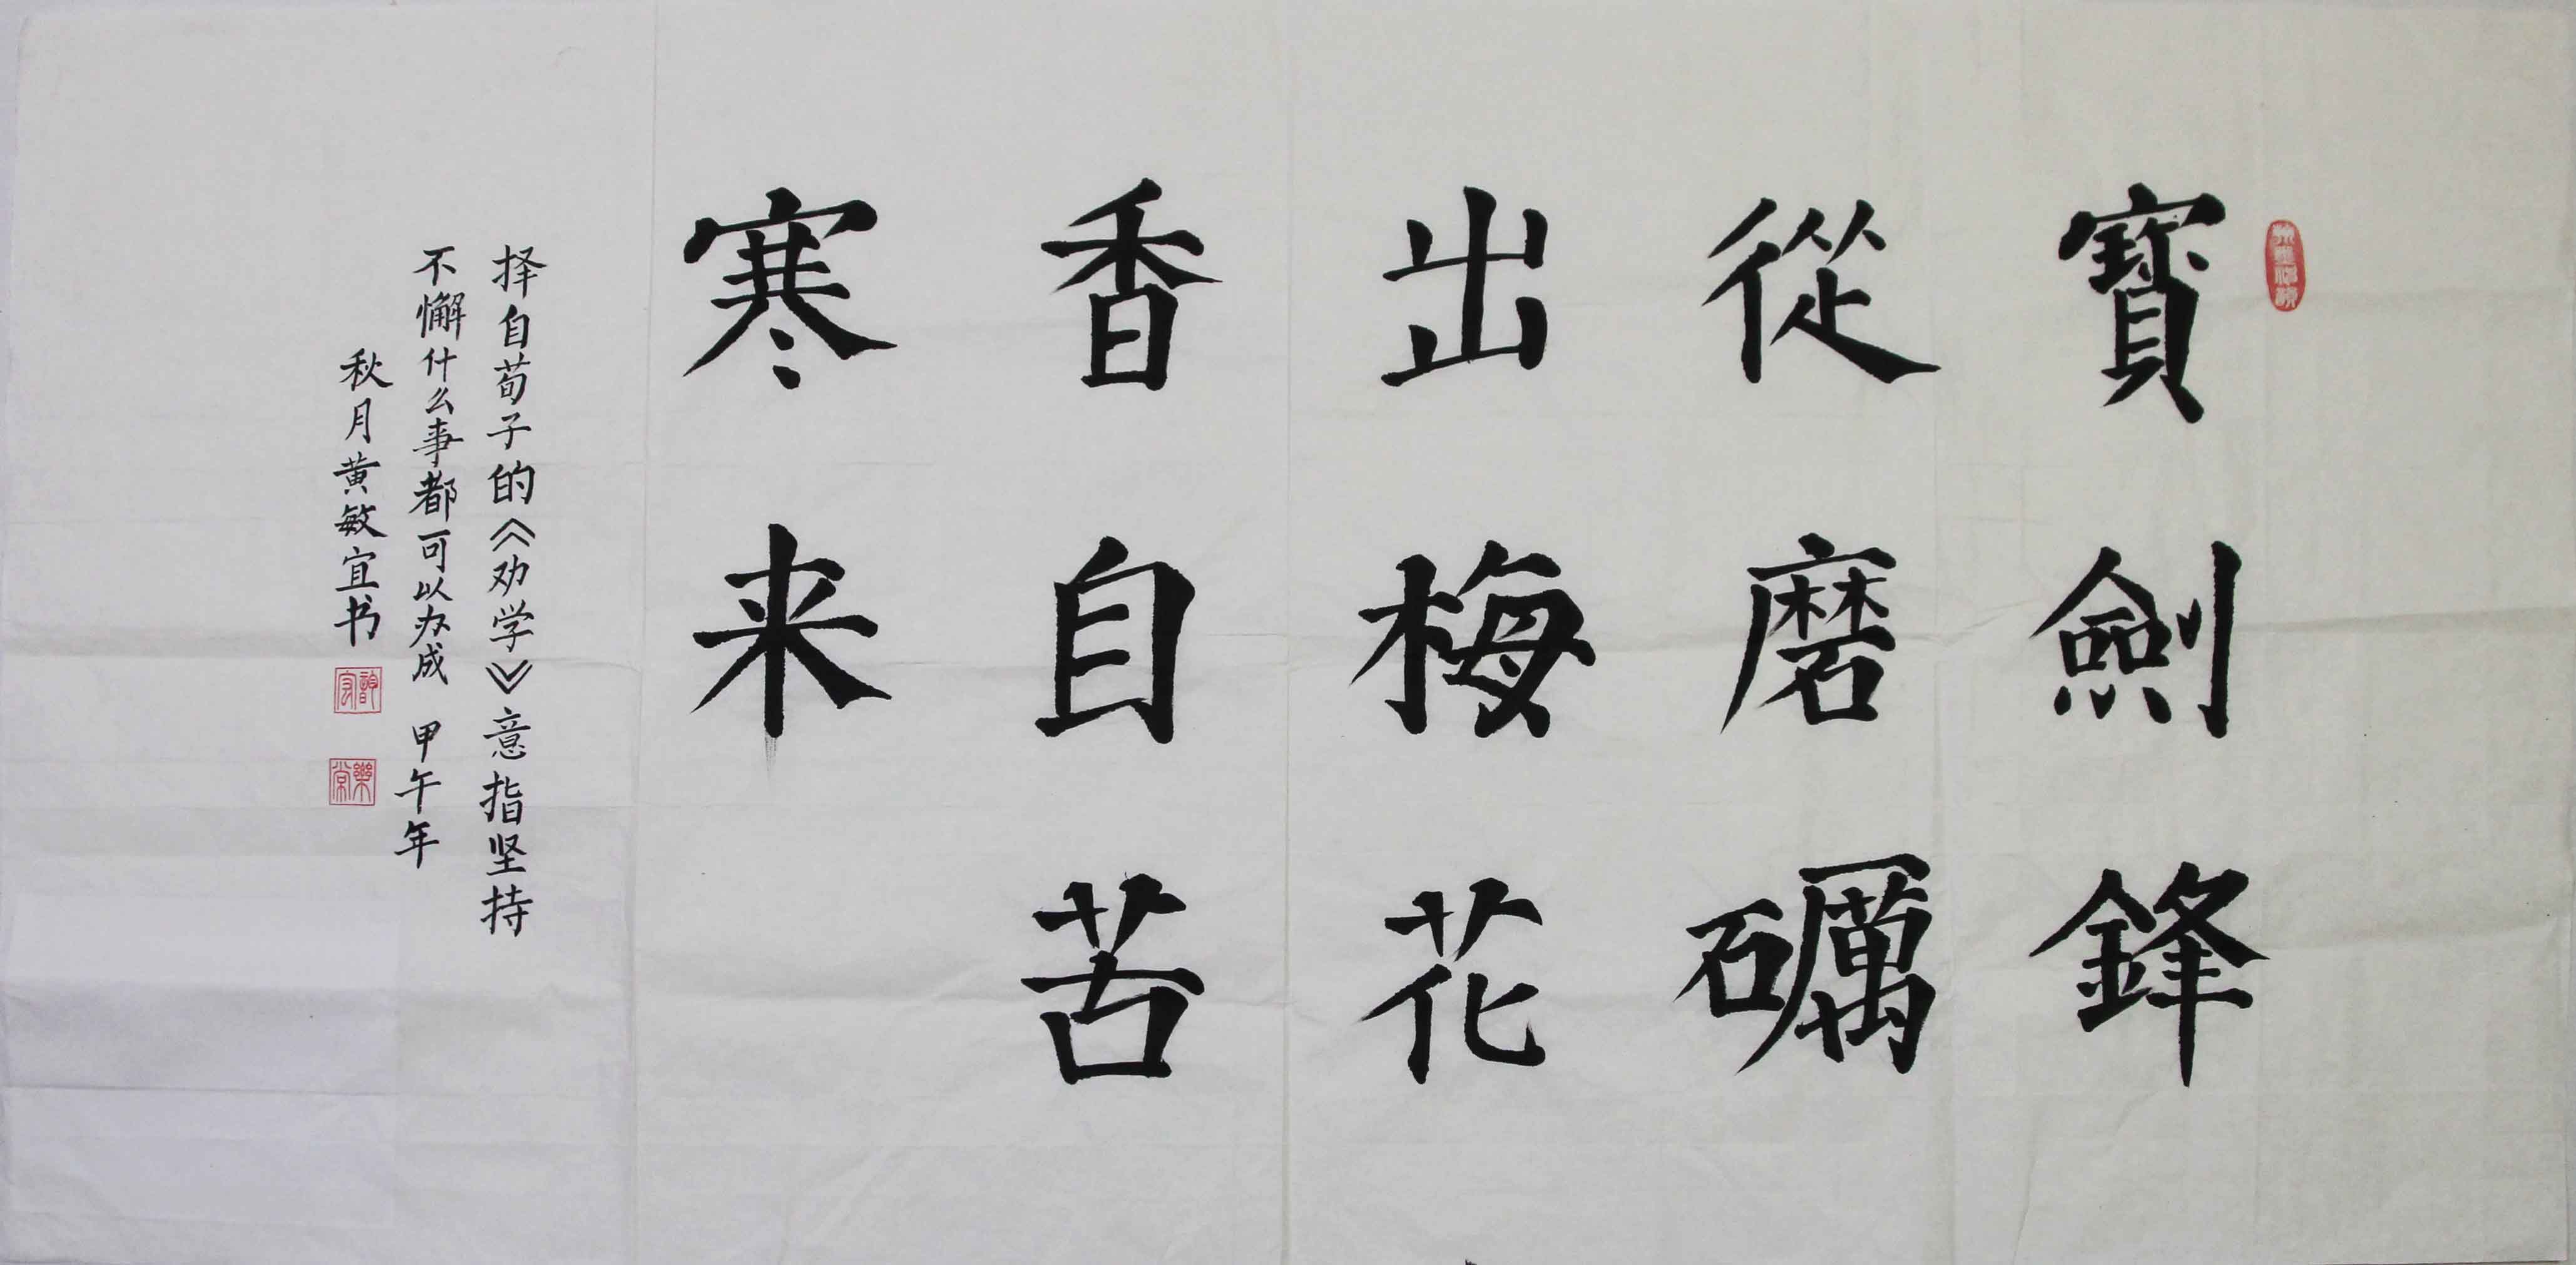 寶劍鋒
從磨礪
出梅花
香自苦
寒来
择自荀子的《劝学》意指坚持
不懈什么事都可以办成 甲午年
秋月黄敏宜书